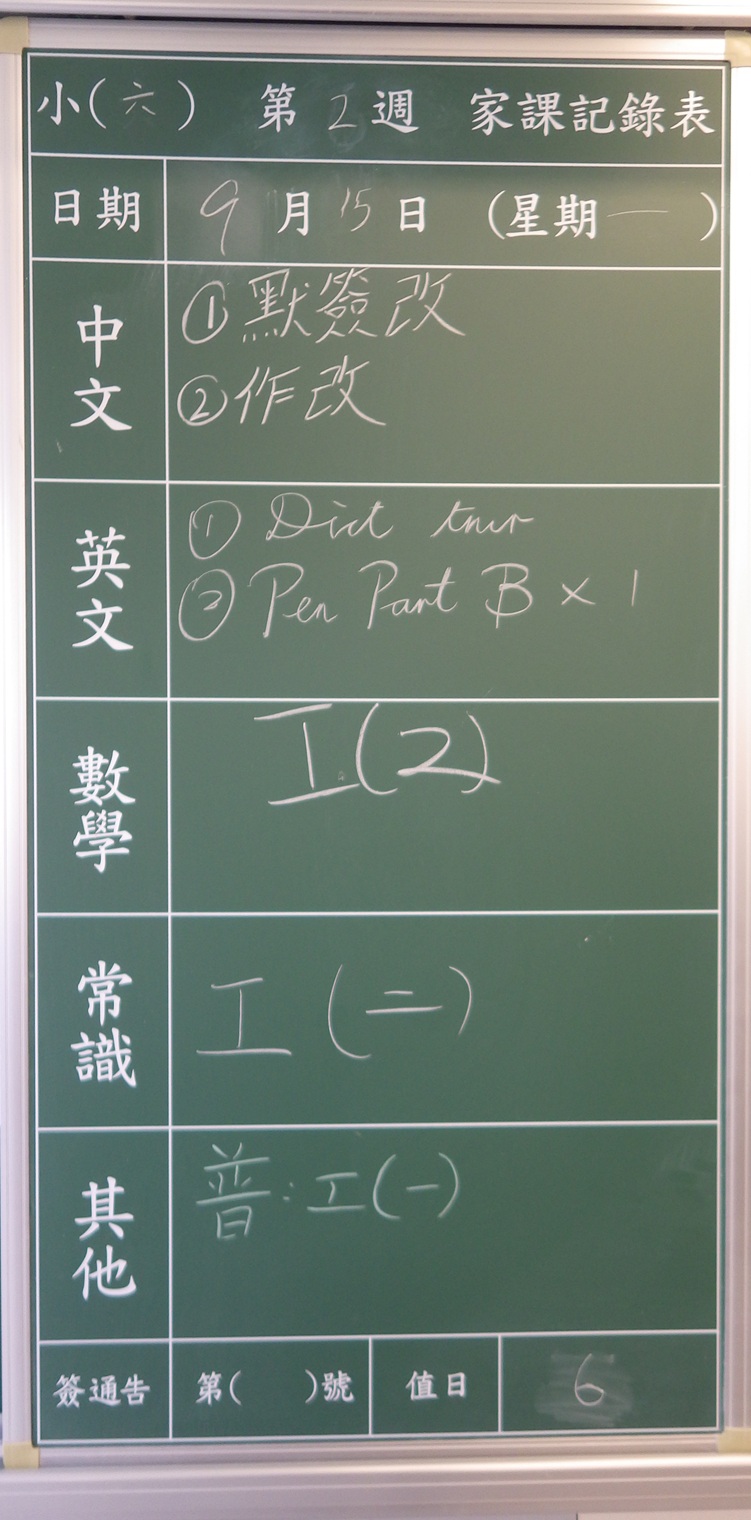 小(六) 第2週 家課記錄表
日期 9月15日 (星期一)
中文
①默簽改
②作改
英文
① Dict
② Pen Part B × 1
數學
工(2)
常識
工(二)
其他
普:工(一)
簽通告 第( )號 值日 6